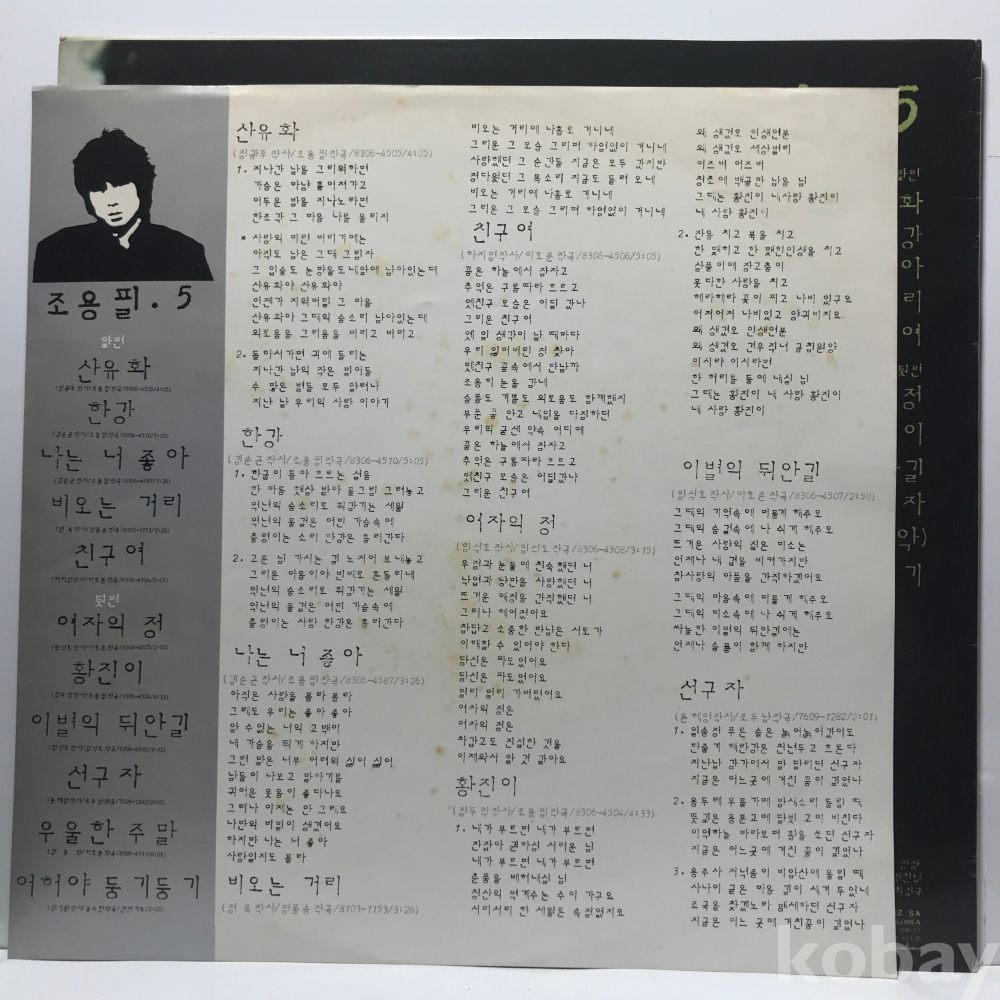 조용필.5
앞면
산유화
한강
나는 너 좋아
비오는 거리
친구여
뒷면
여자의 정
황진이
이별의 뒤안길
선구자
우울한 주말
어허야 둥기둥기
산유화
(정광우 작사/조용필 작곡/8306-4505/4:05)
1. 지나간 날을 그리워하면
가슴은 마냥 흩어져가고
어두운 밤을 지나노라면
한조각 그 마음 나를 울리지
* 사랑의 미련 버리기에는
아직도 남은 그대 그림자
그 입술도 눈망울도 내맘에 남아있는데
산유화야 산유화야
언젠가 지워버릴 그 마음
산유화야 그대의 숨소리 남아있는데
외로움을 그리움을 버리고 버리고
2. 돌아서가면 귀에 들리는
지나간 날의 작은 밀어들
수 많은 별들 모두 알려나
지난 날 우리의 사랑 이야기
한강
(김순곤 작사/조용필 작곡/8306-4510/5:05)
1. 한굽이 돌아 흐르는 설움
한 아름 햇살 받아 물그림 그려놓고
억년의 숨소리로 휘감기는 세월
억년의 물결은 여민 가슴속에
출렁이는 소리 한강은 흘러간다
2. 고운 님 가시는 길 노저어 보내놓고
그리운 마음이야 빈배로 흔들리네
억년의 숨소리로 휘감기는 세월
억년의 물결은 여민 가슴속에
출렁이는 사랑 한강은 흘러간다
나는 너 좋아
(김순곤 작사/조용필 작곡/8306-4587/3:26)
아직은 사랑을 몰라 몰라
그래도 우리는 좋아 좋아
알 수 없는 너의 고백이
내 가슴을 뛰게 하지만
그런 말은 너무 어려워 싫어 싫어
남들이 나보고 말하기를
귀여운 웃음이 좋다나요
그러나 이제는 안 그래요
나만의 비밀이 생겼어요
하지만 나는 너 좋아
사랑인지도 몰라
비오는 거리
(정 욱 작사/정풍송 작곡/8103-1153/3:26)
비오는 거리에 나홀로 거니네
그리운 그 모습 그리며 하염없이 거니네
사랑했던 그 순간들 지금은 모두 갔지만
정다웠던 그 목소리 지금도 들려 오네
비오는 거리에 나홀로 거니네
그리운 그 모습 그리며 하염없이 거니네
친구여
(하지영 작사/이호준 작곡/8306-4506/5:05)
꿈은 하늘에서 잠자고
추억은 구름따라 흐르고
옛친구 모습은 어딜 갔나
그리운 친구여
옛일 생각이 날 때마다
우리 잃어버린 정 찾아
옛친구 꿈속에서 만날까
조용히 눈을 감네
슬픔도 기쁨도 외로움도 함께했지
부푼 꿈 안고 내일을 다짐하던
우리의 굳센 약속 어디에
꿈은 하늘에서 잠자고
추억은 구름따라 흐르고
옛친구 모습은 어딜갔나
그리운 친구여
여자의 정
(임석호 작사/임석호 작곡/8306-4508/3:15)
우정과 눈물에 친숙했던 너
낙엽과 낭만을 사랑했던 너
뜨거운 애정을 간직했던 너
그러나 헤어졌어요
참답고 소중한 만남은 서로가
이해할 수 있어야 한다
당신은 파도였어요
당신은 파도였어요
멀리 멀리 가버렸어요
여자의 정은
여자의 정은
차갑고도 진실한 것을
이제와서 알 것 같아요
황진이
(장두익 작사/조용필 작곡/8306-4504/4:33)
1. 내가 부르면 내가 부르면
잔잡아 권하실 서러운 님
내가 부르면 내가 부르면
춘풍을 베어내실 님
청산의 벽계수는 수이 가구요
서리서리 한 세월은 속절없지요
왜 생겼오 인생연분
왜 생겼오 세상별리
어즈버 어즈버
청초에 백골만 남을 님
그대는 황진이 내사랑 황진이
내 사랑 황진이
2. 잔을 치고 북을 치고
한 맺히고 한 맺힌인생을 치고
살풀이에 장고춤이
못다한 사랑을 치고
헤라헤라 꽃이 피고 나비 있구요
어저어저 나비있고 양귀비지요
왜 생겼오 인생연분
왜 생겼오 견우직녀 금침원앙
이시랴 이시라면
한 허리를 둘에 내실 님
그대는 황진이 내 사랑 황진이
내 사랑 황진이
이별의 뒤안길
(임석호 작사/이호준 작곡/8306-4507/2:50)
그대의 기억속에 머물게 해주오
그대의 숨결속에 나 쉬게 해주오
뜨거운 사랑의 짙은 미소는
언제나 내 곁을 비껴가지만
참사랑의 아픔을 간직하겠어요
그대의 마음속에 머물게 해주오
그대의 미소속에 나 쉬게 해주오
싸늘한 이별의 뒤안길에는
언제나 슬픔이 함께 하지만
선구자
(윤해영 작사/조두남 작곡/7609-1282/2:01)
1. 일송정 푸른 솔은 늙어늙어갔어도
한줄기 해란강은 천년두고 흐른다
지난날 강가에서 말 달리던 선구자
지금은 어느곳에 거친 꿈이 깊었나
2. 용두레 우물가에 밤새소리 들릴 때
뜻깊은 용문교에 달빛 고이 비친다
이역하늘 바라보며 활을 쏘던 선구자
지금은 어느곳에 거친 꿈이 깊었나
3. 용주사 저녁종이 비암산에 울릴 때
사나이 굳은 마음 길이 새겨 두었네
조국을 찾겠노라 맹세하던 선구자
지금은 어느 곳에 거친꿈이 깊었나
5
kobay